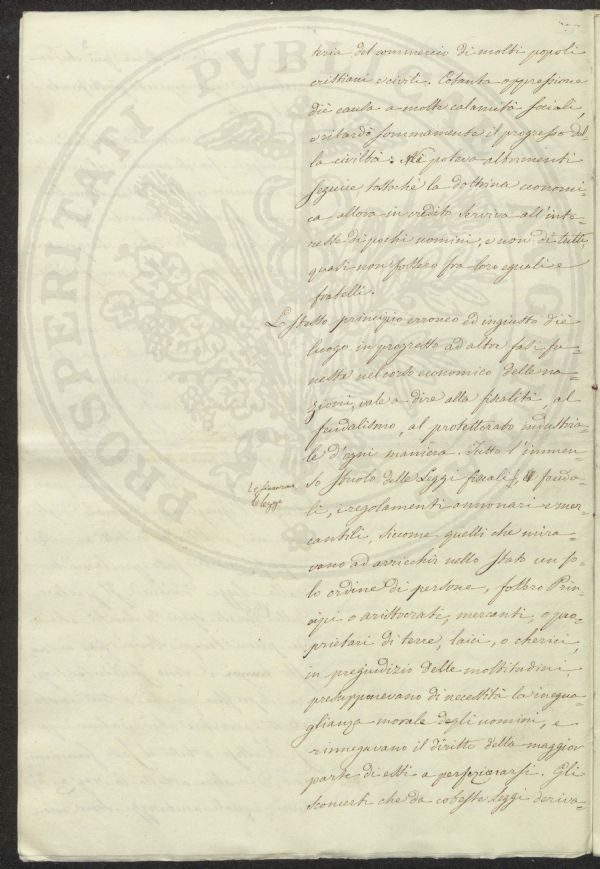 teria del commercio di molti popoli
cristiani e civili. Cotanta oppressione
diè causa a molte calamità sociali,
e ritardò sommamente il progresso del
la civiltà. Nè poteva altrimenti
seguire tostochè la dottrina economi-
ca allora in credito serviva all'inte-
resse di pochi uomini, e non di tutti,
quasi non fossero fra loro eguali e
fratelli.
Lo stesso principio erroneo ed ingiusto diè
luogo in progresso ad altre fasi fu-
neste nel corso economico delle na-
zioni, vale a dire alla fiscalità, al
feudalismo, al protettorato industria-
le d'ogni maniera. Tutto l'immen-
so stuolo delle Leggi fiscali, feuda-
li, i regolamenti annonari e mer-
cantili, siccome quelli che mira-
vano ad arricchir nello Stato un so-
lo ordine di persone, fossero Prin-
cipi o aristocrati, mercanti, o pro-
prietari di terre, laici, o cherici,
in pregiudizio delle moltitudini,
presupponevano di necessità la inegua-
glianza morale degli uomini, e
rinnegavano il diritto della maggior
parte di essi a perfezionarsi. Gli
sconcerti che da coteste Leggi deriva-
PROSPERITATI PUBLICAE AUG